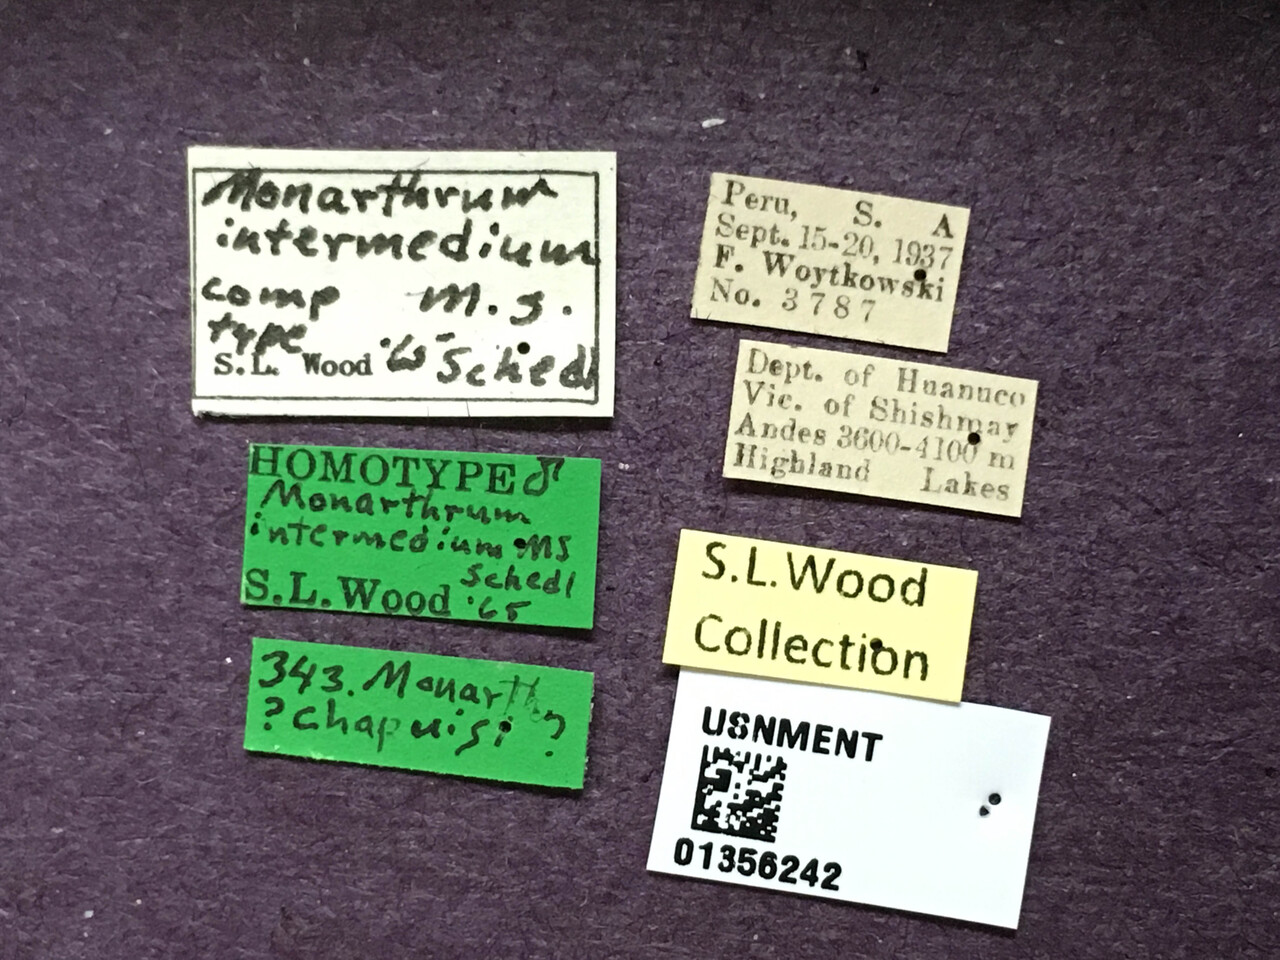 Monarthrum
intermedium
comp M.S.
type
S.L. Wood '65 Schedl
HOMOTYPE ♂
Monarthrum
intermedium MS
Schedl
S.L. Wood '65
343. Monarth
? Chapuisi ?
Peru, S. A
Sept. 15-20, 1937
F. Woytkowski
No. 3787
Dept. of Huanuco
Vic. of Shishmay
Andes 3600-4100 m
Highland Lakes
S.L.Wood
Collection
USNMENT
01356242